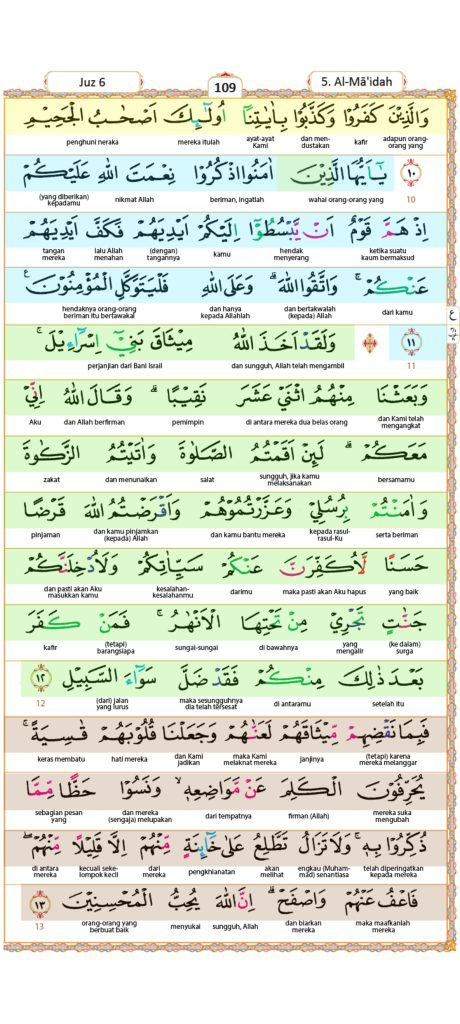 Juz 6 109 5. Al-Mā'idah
وَالَّذِيْنَ كَفَرُوْا وَكَذَّبُوْا بِاٰيٰتِنَآ اُولٰۤىِٕكَ اَصْحٰبُ الْجَحِيْمِ
adapun orang-orang yang kafir dan mendustakan ayat-ayat Kami mereka itulah penghuni neraka
١٠ يٰٓاَيُّهَا الَّذِيْنَ اٰمَنُوا اذْكُرُوْا نِعْمَتَ اللّٰهِ عَلَيْكُمْ
10 wahai orang-orang yang beriman, ingatlah nikmat Allah (yang diberikan) kepadamu
اِذْ هَمَّ قَوْمٌ اَنْ يَّبْسُطُوْٓا اِلَيْكُمْ اَيْدِيَهُمْ فَكَفَّ اَيْدِيَهُمْ
ketika suatu kaum bermaksud hendak menyerang kamu (dengan) tangannya lalu Allah menahan tangan mereka
عَنْكُمْۚ وَاتَّقُوا اللّٰهَ ۗ وَعَلَى اللّٰهِ فَلْيَتَوَكَّلِ الْمُؤْمِنُوْنَ ࣖ
dari kamu dan bertakwalah (kepada) Allah dan hanya kepada Allahlah hendaknya orang-orang beriman itu bertawakal
ع
١١ وَلَقَدْ اَخَذَ اللّٰهُ مِيْثَاقَ بَنِيْٓ اِسْرَاۤءِيْلَۚ
11 dan sungguh, Allah telah mengambil perjanjian dari Bani Israil
وَبَعَثْنَا مِنْهُمُ اثْنَيْ عَشَرَ نَقِيْبًاۗ وَقَالَ اللّٰهُ اِنِّيْ
dan Kami telah mengangkat di antara mereka dua belas orang pemimpin dan Allah berfirman Aku
مَعَكُمْ ۗ لَىِٕنْ اَقَمْتُمُ الصَّلٰوةَ وَاٰتَيْتُمُ الزَّكٰوةَ
bersamamu sungguh, jika kamu melaksanakan salat dan menunaikan zakat
وَاٰمَنْتُمْ بِرُسُلِيْ وَعَزَّرْتُمُوْهُمْ وَاَقْرَضْتُمُ اللّٰهَ قَرْضًا
serta beriman kepada rasul-rasul-Ku dan kamu bantu mereka dan kamu pinjamkan (kepada) Allah pinjaman
حَسَنًا لَّاُكَفِّرَنَّ عَنْكُمْ سَيِّاٰتِكُمْ وَلَاُدْخِلَنَّكُمْ
yang baik maka pasti akan Aku hapus darimu kesalahan-kesalahanmu dan pasti akan Aku masukkan kamu
جَنّٰتٍ تَجْرِيْ مِنْ تَحْتِهَا الْاَنْهٰرُۚ فَمَنْ كَفَرَ
(ke dalam) surga yang mengalir di bawahnya sungai-sungai (tetapi) barangsiapa kafir
بَعْدَ ذٰلِكَ مِنْكُمْ فَقَدْ ضَلَّ سَوَاۤءَ السَّبِيْلِ ١٢
setelah itu di antaramu maka sesungguhnya dia telah tersesat (dari) jalan yang lurus 12
فَبِمَا نَقْضِهِمْ مِّيْثَاقَهُمْ لَعَنّٰهُمْ وَجَعَلْنَا قُلُوْبَهُمْ قٰسِيَةً ۚ
(tetapi) karena mereka melanggar janjinya maka Kami melaknat mereka dan Kami jadikan hati mereka keras membatu
يُحَرِّفُوْنَ الْكَلِمَ عَنْ مَّوَاضِعِهٖۙ وَنَسُوْا حَظًّا مِّمَّا
mereka suka mengubah firman (Allah) dari tempatnya dan mereka (sengaja) melupakan sebagian pesan yang
ذُكِّرُوْا بِهٖۚ وَلَا تَزَالُ تَطَّلِعُ عَلٰى خَاۤىِٕنَةٍ مِّنْهُمْ اِلَّا قَلِيْلًا مِّنْهُمْ ۖ
telah diperingatkan kepada mereka engkau (Muhammad) senantiasa akan melihat pengkhianatan dari mereka kecuali sekelompok kecil di antara mereka
فَاعْفُ عَنْهُمْ وَاصْفَحْ ۗ اِنَّ اللّٰهَ يُحِبُّ الْمُحْسِنِيْنَ ١٣
maka maafkanlah mereka dan biarkan mereka sungguh, Allah menyukai orang-orang yang berbuat baik 13